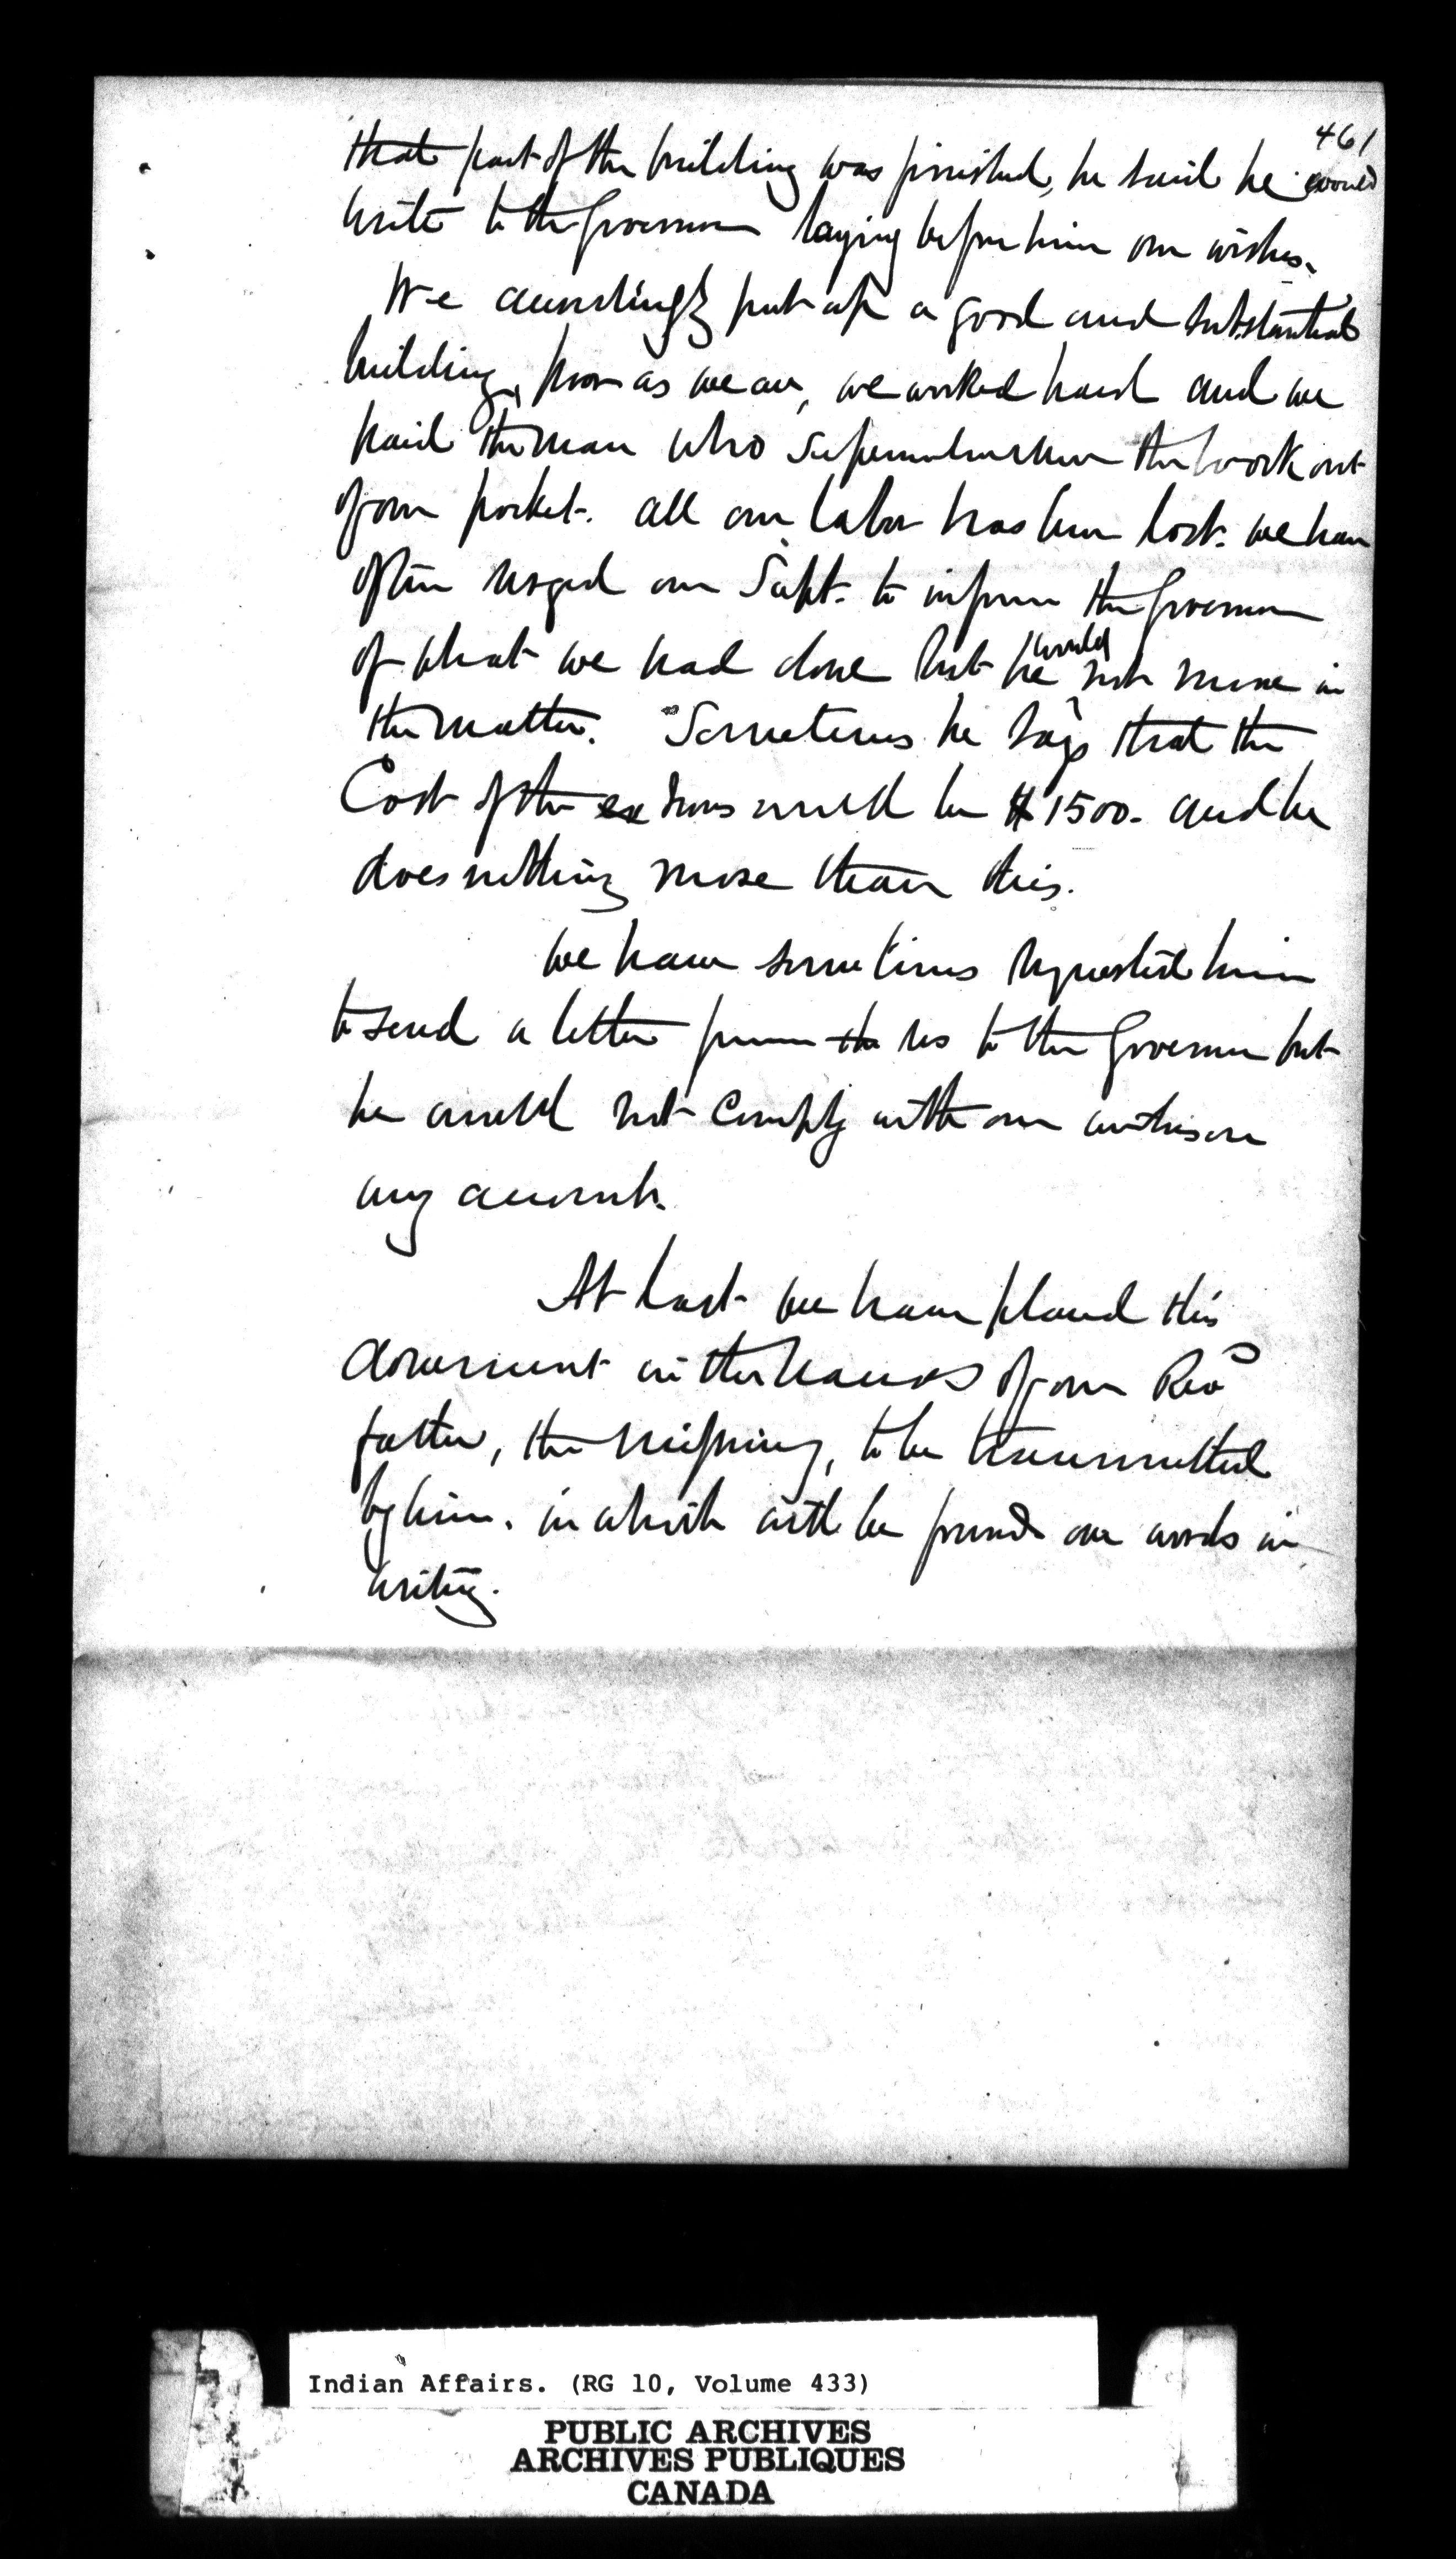 461
that part of the building was finished, he said he would
write to the Governor laying before him our wishes.
We accordingly put up a good and substantial
building, poor as we are, we worked hard and we
paid the man who superintended the work out
of our pocket. all our labor has been lost. we have
often urged our Supt. to inform the Governor
of what we had done but he would not move in
the matter. Sometimes he says that the
Cost of the would be $1500. and he
does nothing more than this.
We have sometimes requested him
to send a letter from us to the Governor but
he would not comply with our wishes on
any account.
At last we have placed this
document in the hands of our Revd
father, the missionary, to be transmitted
by him. in which will be found our words in
writing.
Indian Affairs. (RG 10, Volume 433)
PUBLIC ARCHIVES
ARCHIVES PUBLIQUES
CANADA